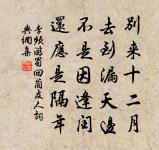 別来十二月
去到漏天邊
不是因逢閏
還應是隔年
李頻游蜀回簡友人詞
典綱集